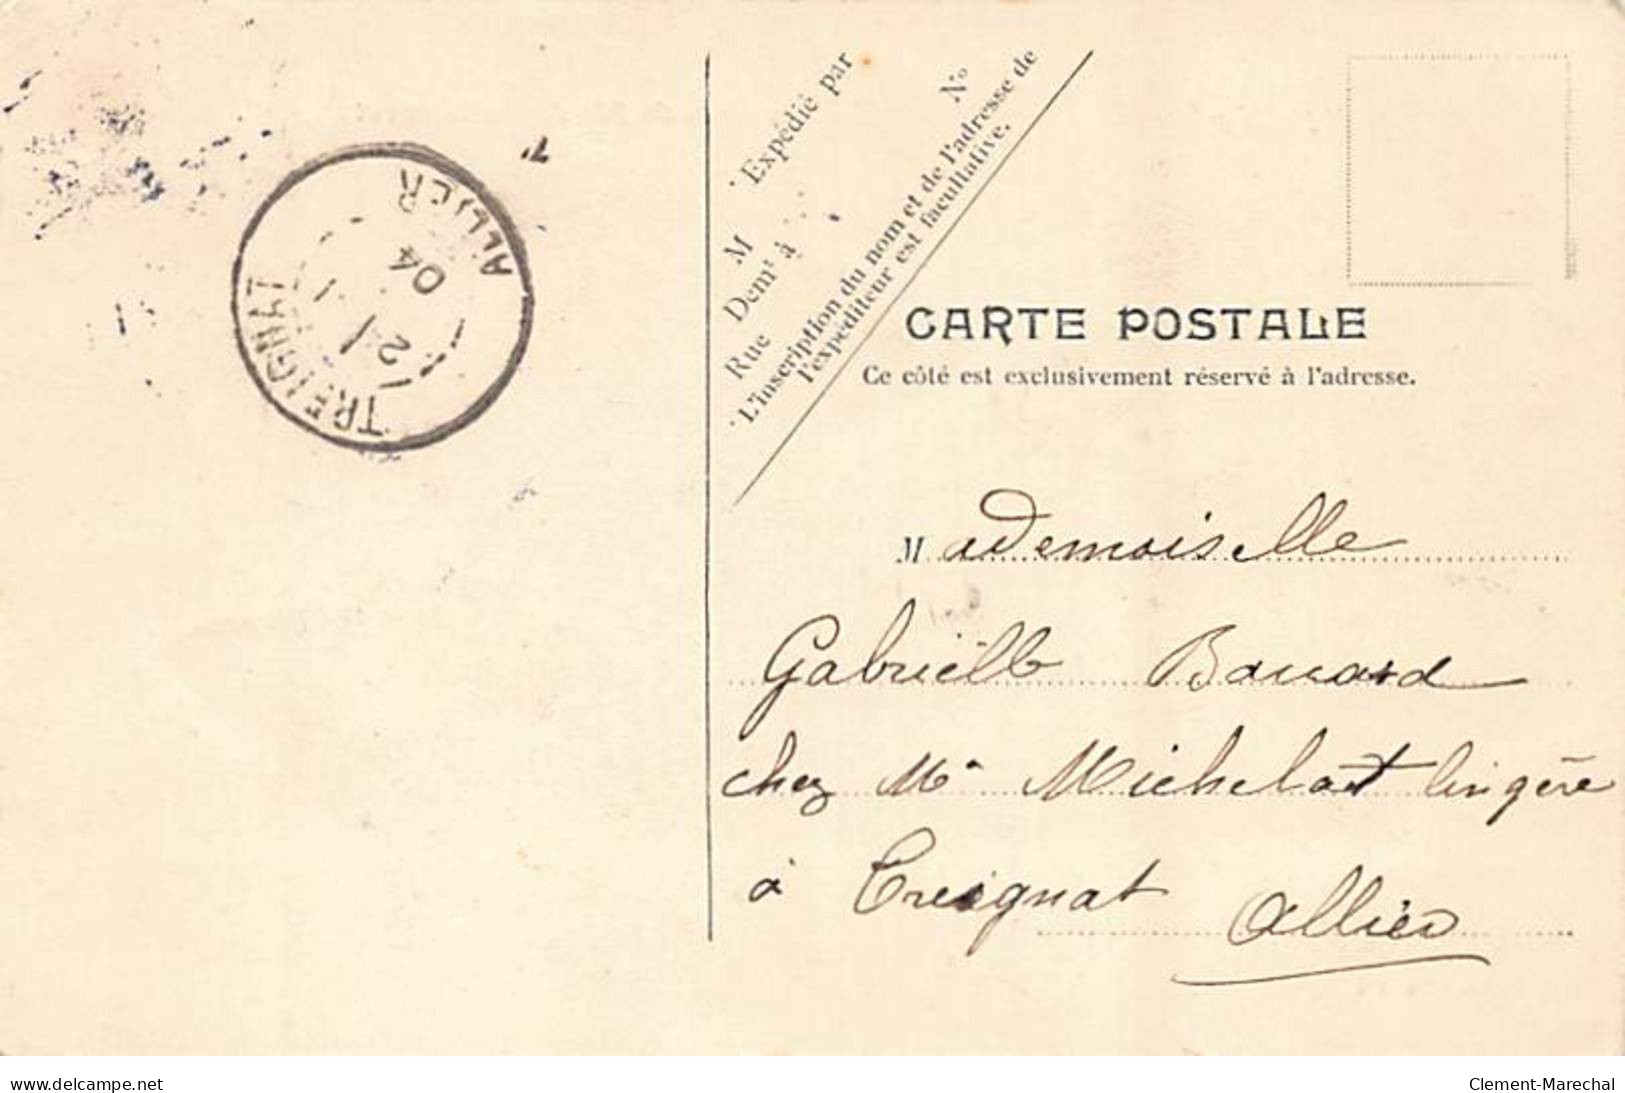 TREIGNAT
ALLIER
04
M Expédié par
Demt à
Rue
No
L'inscription du nom et de l'adresse de
l'expéditeur est facultative.
CARTE POSTALE
Ce côté est exclusivement réservé à l'adresse.
Mademoiselle
Gabrielle
chez Me Michelat lingère
à Treignat Allier
www.delcampe.net
Clement-Marechal